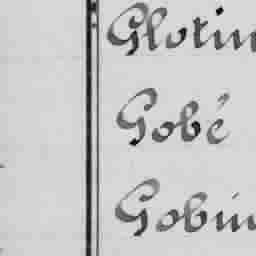 Glotin
Gobé
Gobin